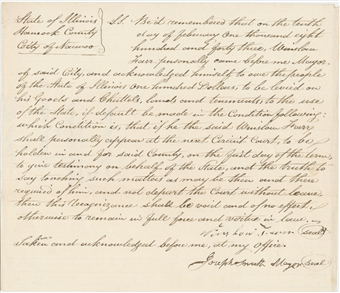 State of Illinois
Hancock County
City of Nauvoo
S.t. Be it remembered that on the tenth
day of February one thousand eight
hundred and forty three, Winslow
Farr personally came before me Mayor
of said City, and acknowledged himself to owe the people
of the State of Illinois one Hundred Dollars, to be levied on
his Goods and Chattels, lands and tenements, to the use
of the State, if default be made in the Condition following:
which Condition is, that if he the said Winslow Farr
shall personally appear at the next Circuit Court, to be
holden in and for said County, on the first day of the term,
to give testimony on behalf of the state, and the truth to
say touching such matters as may be then and there
required of him, and not depart the Court without leave
then this Recognizance shall be void and of no effect,
otherwise to remain in full force and virtue in law.
Winslow Farr (seal)
Taken and acknowledged before me, at my office.
Joseph Smith Mayor seal